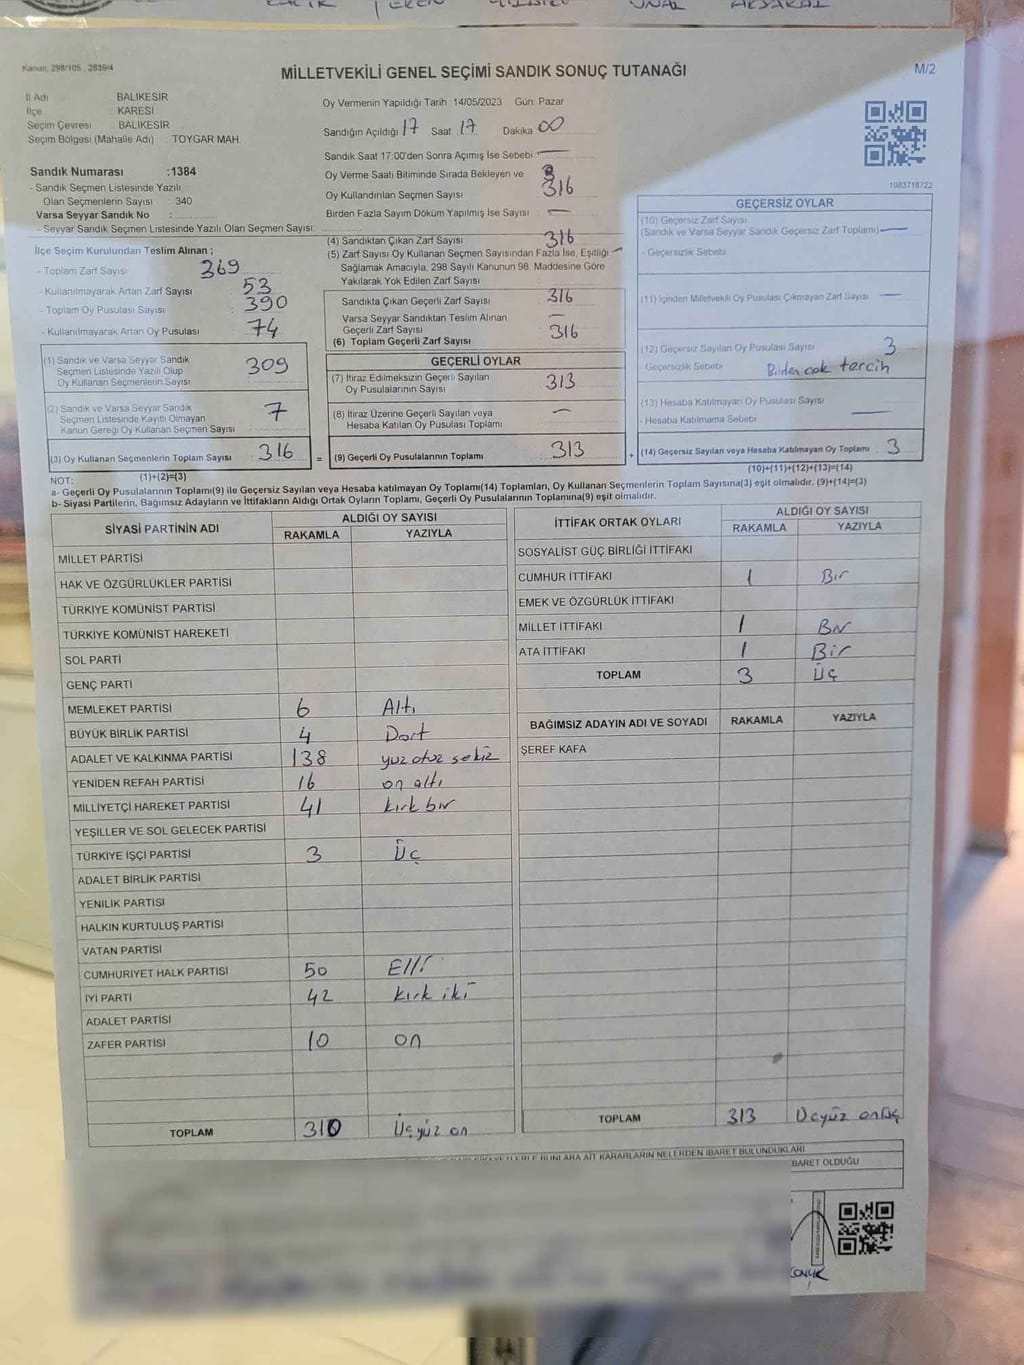 Kanun: 298/105 , 2839/4
MİLLETVEKİLİ GENEL SEÇİMİ SANDIK SONUÇ TUTANAĞI
M/2
İl Adı BALIKESİR
İlçe KARESİ
Seçim Çevresi BALIKESİR
Seçim Bölgesi (Mahalle Adı) TOYGAR MAH
Sandık Numarası :1384
- Sandık Seçmen Listesinde Yazılı
Olan Seçmenlerin Sayısı : 340
Varsa Seyyar Sandık No :
- Seyyar Sandık Seçmen Listesinde Yazılı Olan Seçmen Sayısı:
İlçe Seçim Kurulundan Teslim Alınan ;
- Toplam Zarf Sayısı : 369
- Kullanılmayarak Artan Zarf Sayısı : 53
- Toplam Oy Pusulası Sayısı : 390
- Kullanılmayarak Artan Oy Pusulası : 74
(1) Sandık ve Varsa Seyyar Sandık
Seçmen Listesinde Yazılı Olup
Oy Kullanan Seçmenlerin Sayısı : 309
(2) Sandık ve Varsa Seyyar Sandık
Seçmen Listesinde Kayıtlı Olmayan
Kanun Gereği Oy Kullanan Seçmen Sayısı : 7
(3) Oy Kullanan Seçmenlerin Toplam Sayısı : 316
Oy Vermenin Yapıldığı Tarih : 14/05/2023 Gün: Pazar
Sandığın Açıldığı 17 Saat 17 Dakika 00
Sandık Saat 17:00'den Sonra Açımış İse Sebebi : —
Oy Verme Saati Bitiminde Sırada Bekleyen ve
Oy Kullandırılan Seçmen Sayısı : 316
Birden Fazla Sayım Döküm Yapılmış İse Sayısı : —
(4) Sandıktan Çıkan Zarf Sayısı : 316
(5) Zarf Sayısı Oy Kullanan Seçmen Sayısından Fazla İse, Eşitliği —
Sağlamak Amacıyla, 298 Sayılı Kanunun 98. Maddesine Göre
Yakılarak Yok Edilen Zarf Sayısı :
Sandıkta Çıkan Geçerli Zarf Sayısı : 316
Varsa Seyyar Sandıktan Teslim Alınan
Geçerli Zarf Sayısı : —
(6) Toplam Geçerli Zarf Sayısı : 316
GEÇERLİ OYLAR
(7) İtiraz Edilmeksizin Geçerli Sayılan
Oy Pusulalarının Sayısı : 313
(8) İtiraz Üzerine Geçerli Sayılan veya
Hesaba Katılan Oy Pusulası Toplamı : —
= (9) Geçerli Oy Pusulalarının Toplamı : 313
1083718722
GEÇERSİZ OYLAR
(10) Geçersiz Zarf Sayısı
(Sandık ve Varsa Seyyar Sandık Geçersiz Zarf Toplamı) —
- Geçersizlik Sebebi
(11) İçinden Milletvekili Oy Pusulası Çıkmayan Zarf Sayısı —
(12) Geçersiz Sayılan Oy Pusulası Sayısı 3
- Geçersizlik Sebebi Birden çok tercih
(13) Hesaba Katılmayan Oy Pusulası Sayısı
- Hesaba Katılmama Sebebi —
+ (14) Geçersiz Sayılan veya Hesaba Katılmayan Oy Toplamı 3
NOT: (1)+(2)=(3) (10)+(11)+(12)+(13)=(14)
a- Geçerli Oy Pusulalarının Toplamı(9) ile Geçersiz Sayılan veya Hesaba katılmayan Oy Toplamı(14) Toplamları, Oy Kullanan Seçmenlerin Toplam Sayısına(3) eşit olmalıdır. (9)+(14)=(3)
b- Siyasi Partilerin, Bağımsız Adayların ve İttifakların Aldığı Ortak Oyların Toplamı, Geçerli Oy Pusulalarının Toplamına(9) eşit olmalıdır.
SİYASİ PARTİNİN ADI ALDIĞI OY SAYISI
RAKAMLA YAZIYLA
MİLLET PARTİSİ
HAK VE ÖZGÜRLÜKLER PARTİSİ
TÜRKİYE KOMÜNİST PARTİSİ
TÜRKİYE KOMÜNİST HAREKETİ
SOL PARTİ
GENÇ PARTİ
MEMLEKET PARTİSİ 6 Altı
BÜYÜK BİRLİK PARTİSİ 4 Dört
ADALET VE KALKINMA PARTİSİ 138 yuz otuz sekiz
YENİDEN REFAH PARTİSİ 16 on altı
MİLLİYETÇİ HAREKET PARTİSİ 41 kırk bir
YEŞİLLER VE SOL GELECEK PARTİSİ
TÜRKİYE İŞÇİ PARTİSİ 3 Üç
ADALET BİRLİK PARTİSİ
YENİLİK PARTİSİ
HALKIN KURTULUŞ PARTİSİ
VATAN PARTİSİ
CUMHURİYET HALK PARTİSİ 50 Elli
İYİ PARTİ 42 kırk iki
ADALET PARTİSİ
ZAFER PARTİSİ 10 on
TOPLAM 310 Üçyüz on
İTTİFAK ORTAK OYLARI ALDIĞI OY SAYISI
RAKAMLA YAZIYLA
SOSYALİST GÜÇ BİRLİĞİ İTTİFAKI
CUMHUR İTTİFAKI 1 Bir
EMEK VE ÖZGÜRLÜK İTTİFAKI
MİLLET İTTİFAKI 1 Bir
ATA İTTİFAKI 1 Bir
TOPLAM 3 Üç
BAĞIMSIZ ADAYIN ADI VE SOYADI RAKAMLA YAZIYLA
ŞEREF KAFA
TOPLAM 313 Üçyüz onüç
KARARLARIN NELERDEN İBARET BULUNDUKLARI
İBARET OLDUĞU